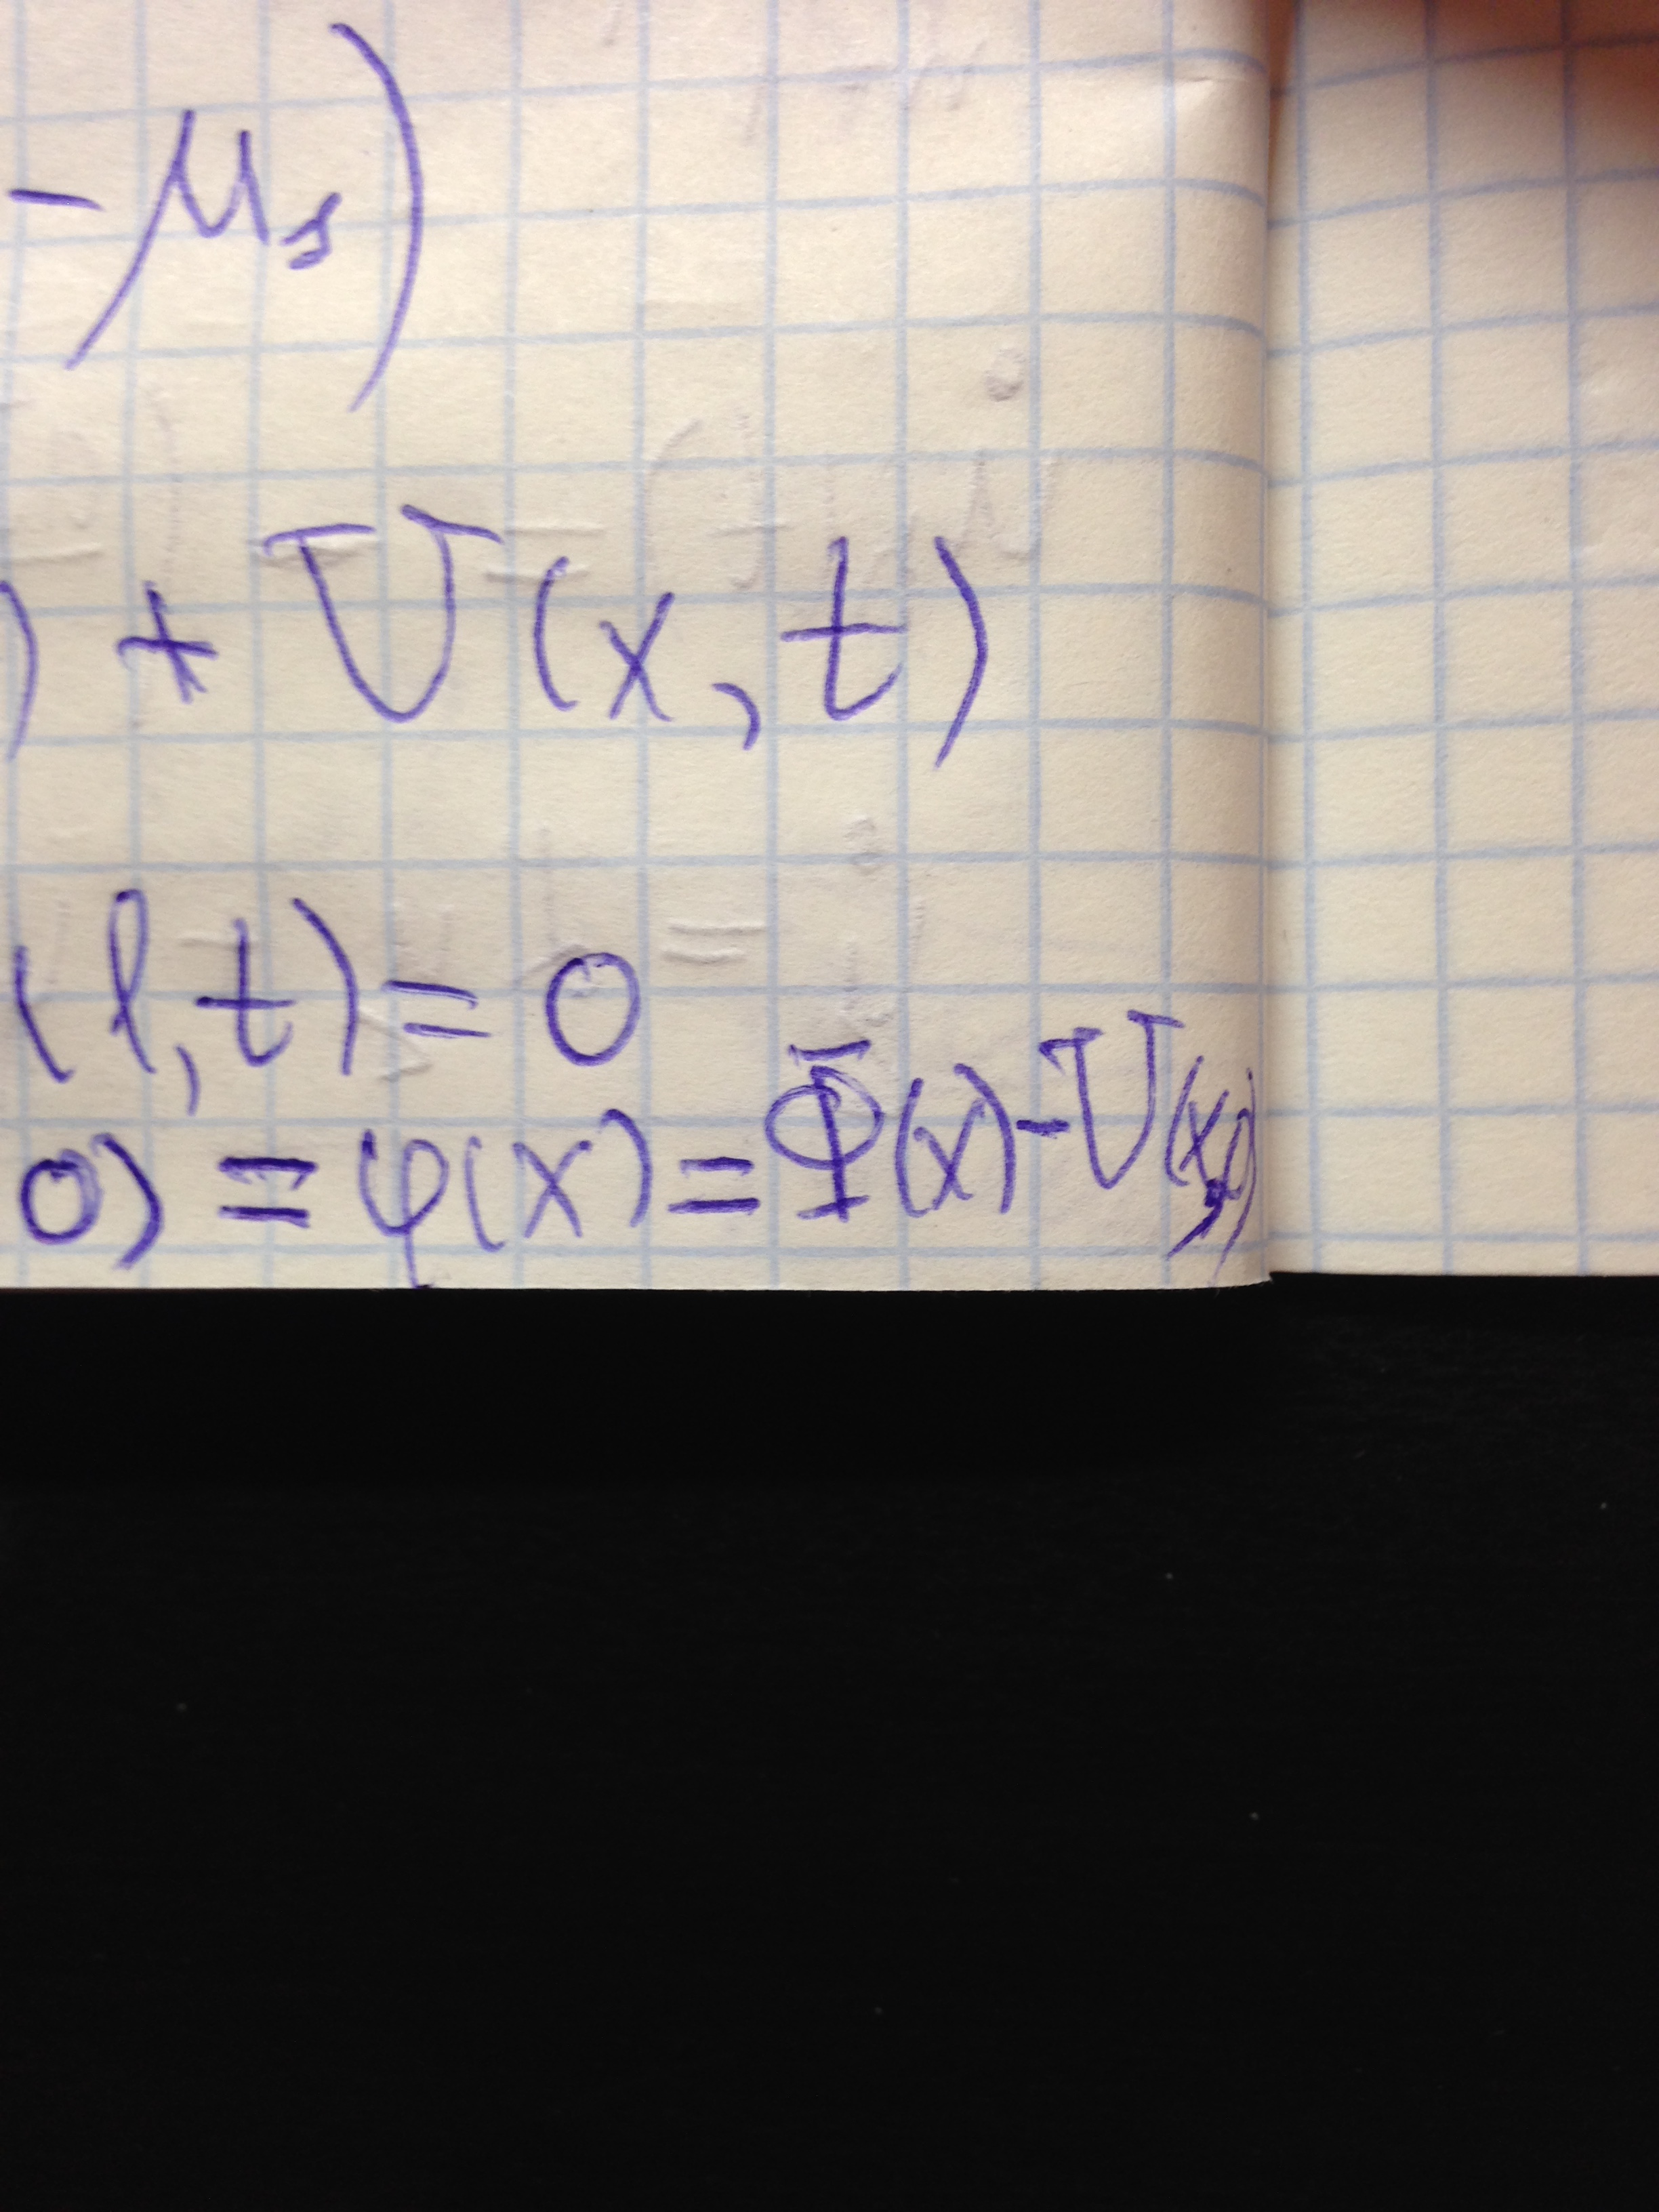 - μ₁)
) + U(x, t)
(l, t) = 0
0) = φ(x) = Φ(x) - U(x,0)